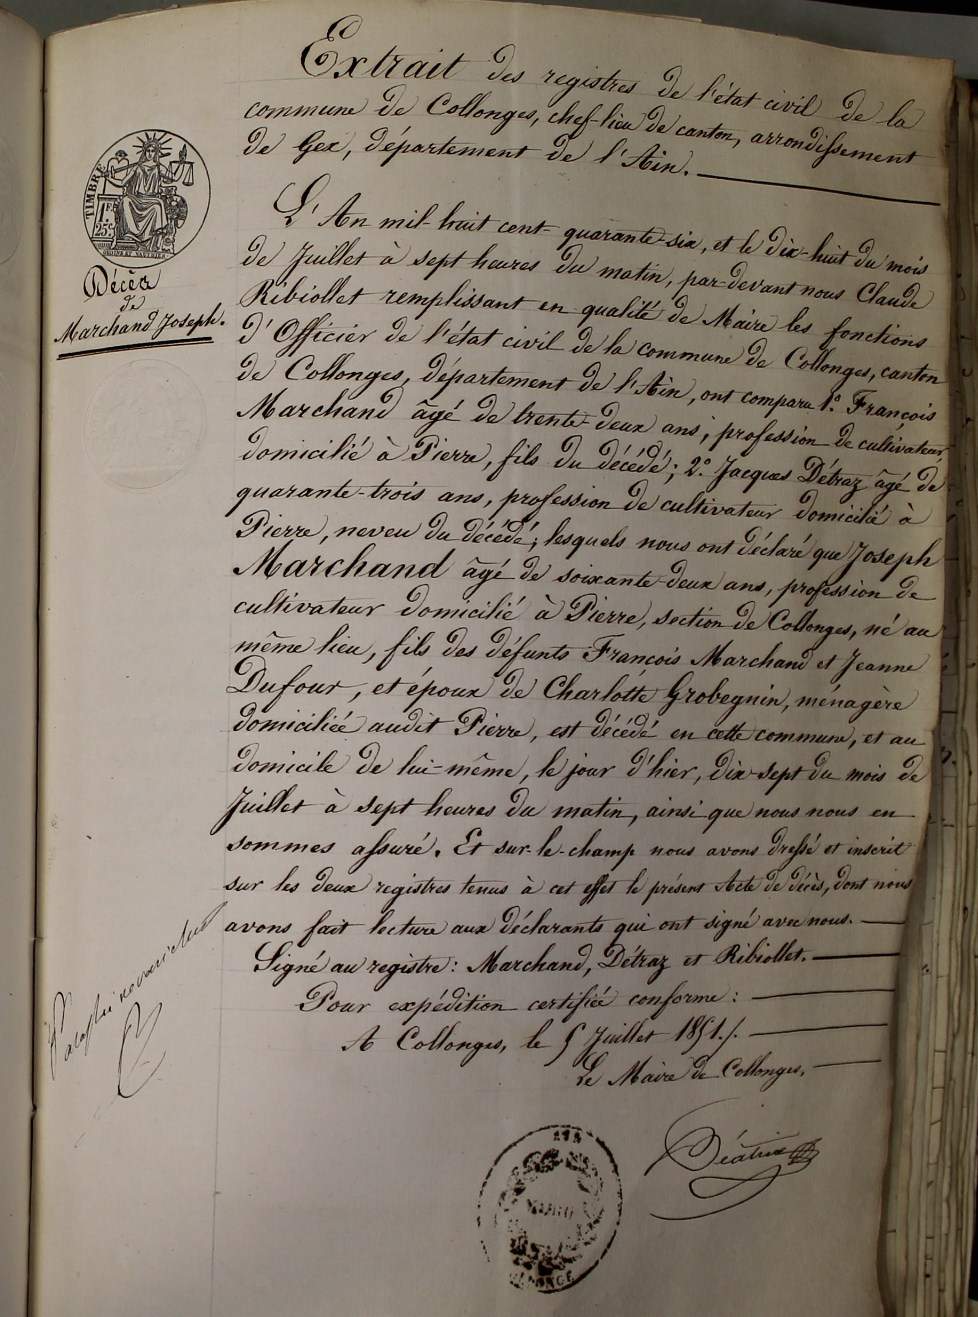 Extrait des registres de l'état civil de la
commune de Collonges, chef-lieu de canton, arrondissement
de Gex, département de l'Ain.
TIMBRE
1 FR
25 C.
Décès
de
Marchand Joseph.
L'An mil-huit cent-quarante-six, et le dix-huit du mois
de Juillet à sept heures du matin, par-devant nous Claude
Ribiollet remplissant en qualité de Maire les fonctions
d'Officier de l'état civil de la commune de Collonges, canton
de Collonges, département de l'Ain, ont comparu 1.° François
Marchand âgé de trente-deux ans, profession de cultivateur
domicilié à Pierre, fils du décédé; 2.° Jacques Détraz âgé de
quarante-trois ans, profession de cultivateur domicilié à
Pierre, neveu du décédé; lesquels nous ont déclaré que Joseph
Marchand âgé de soixante-deux ans, profession de
cultivateur domicilié à Pierre, section de Collonges, né au
même lieu, fils des défunts François Marchand et Jeanne
Dufour, et époux de Charlotte Grobegnin, ménagère
domiciliée audit Pierre, est décédé en cette commune, et au
domicile de lui-même, le jour d'hier, dix-sept du mois de
Juillet à sept heures du matin, ainsi que nous nous en
sommes assuré. Et sur-le-champ nous avons dressé et inscrit
sur les deux registres tenus à cet effet le présent Acte de décès, dont nous
avons fait lecture aux déclarants qui ont signé avec nous.
Signé au registre: Marchand, Détraz et Ribiollet.
Pour expédition certifiée conforme:
A Collonges, le 5 Juillet 1851./.
Le Maire de Collonges,
Béatrix